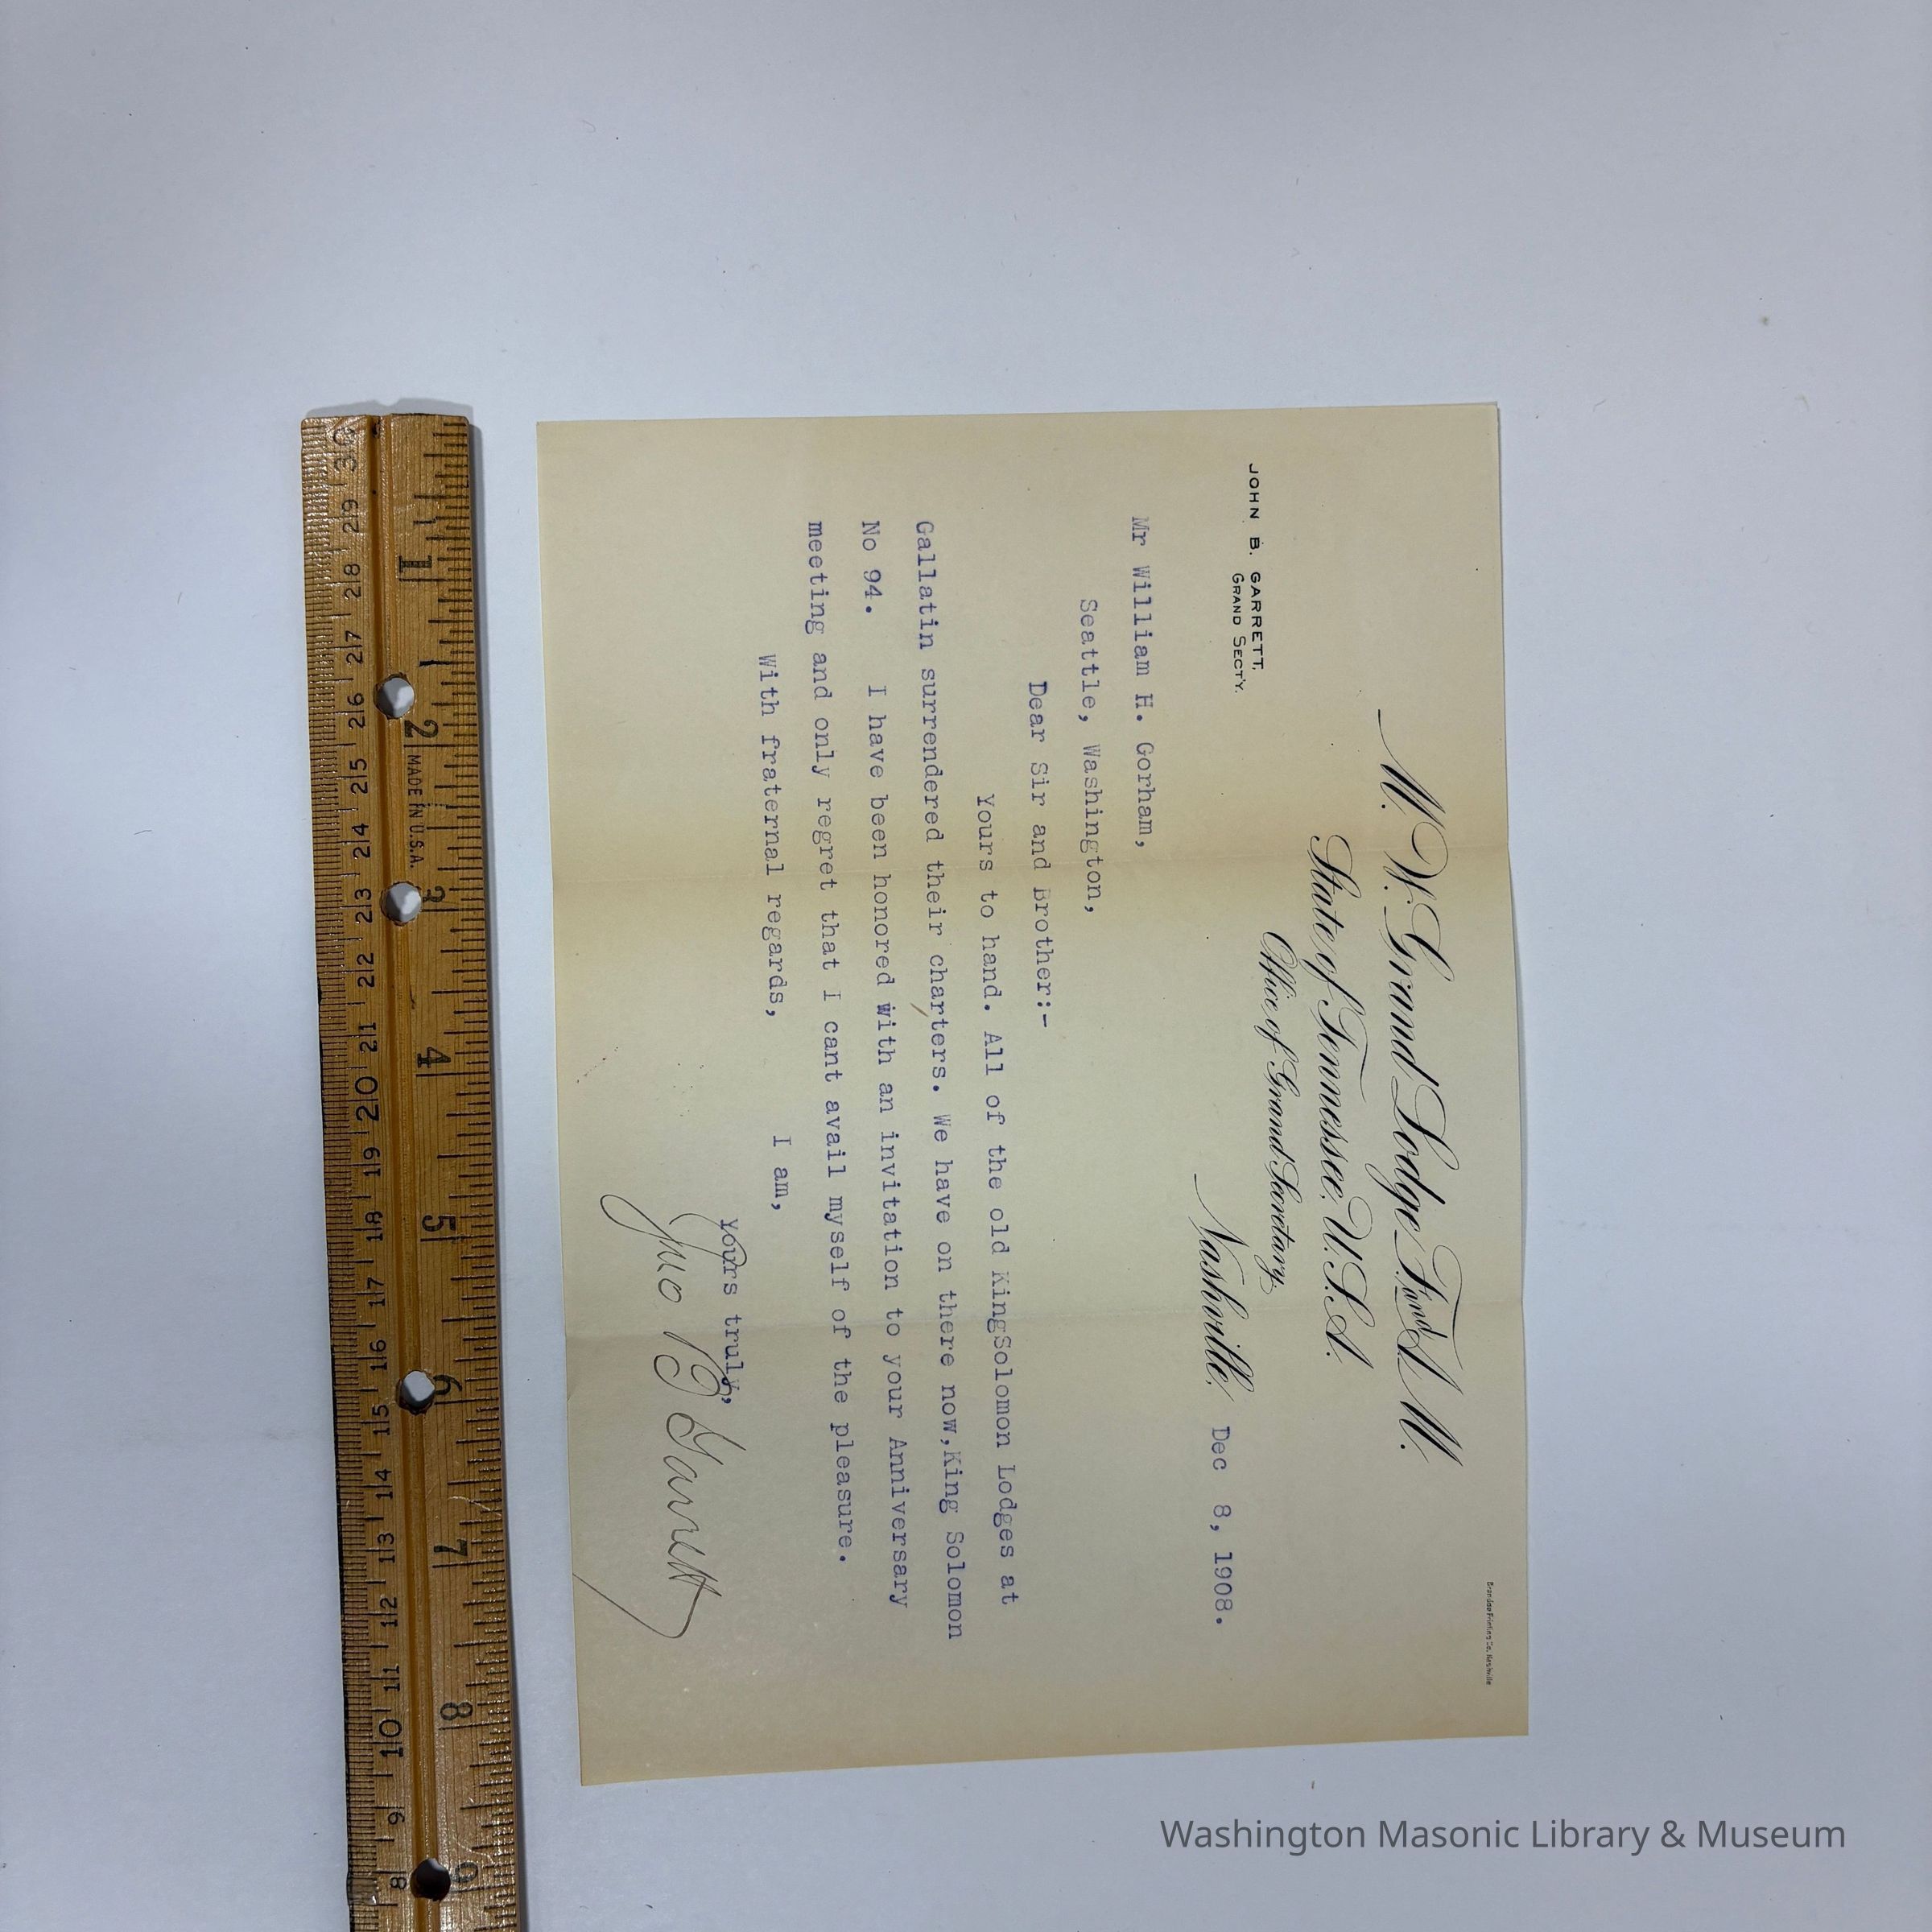 Brandon Printing Co. Nashville
M. W. Grand Lodge F. and A. M.
State of Tennessee, U.S.A.
Office of Grand Secretary.
JOHN B. GARRETT,
GRAND SECT'Y.
Nashville, Dec 8, 1908.
Mr William H. Gorham,
Seattle, Washington,
Dear Sir and Brother:-
Yours to hand. All of the old KingSolomon Lodges at
Gallatin surrendered their charters. We have on there now,King Solomon
No 94. I have been honored with an invitation to your Anniversary
meeting and only regret that I cant avail myself of the pleasure.
With fraternal regards, I am,
Yours truly,
Jno B Garrett
1 2 MADE IN U.S.A. 3 4 5 6 7 8 9
30 29 28 27 26 25 24 23 22 21 20 19 18 17 16 15 14 13 12 11 10 9 8
Washington Masonic Library & Museum